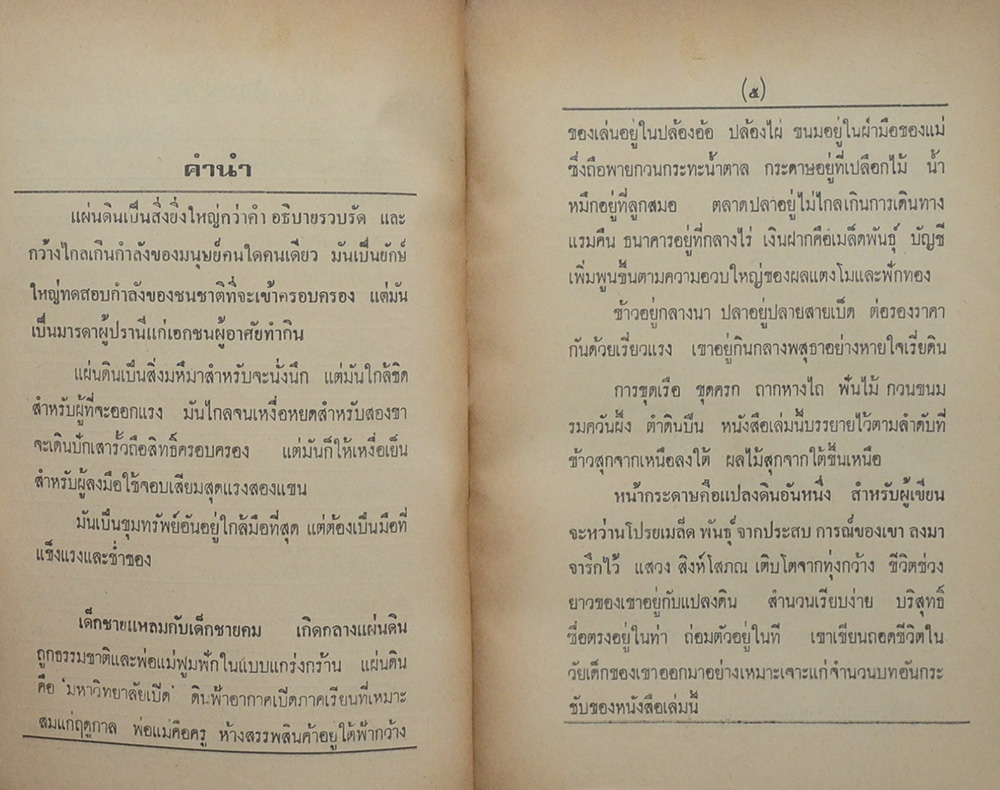 คำนำ
แผ่นดินเป็นสิ่งยิ่งใหญ่กว่าคำ อธิบายรวบรัด และ
กว้างไกลเกินกำลังของมนุษย์คนใดคนเดียว มันเป็นยักษ์
ใหญ่ทดสอบกำลังของชนชาติที่จะเข้าครอบครอง แต่มัน
เป็นมารดาผู้ปรานีแก่เอกชนผู้อาศัยทำกิน
แผ่นดินเป็นสิ่งมหึมาสำหรับจะนั่งนึก แต่มันใกล้ชิด
สำหรับผู้ที่จะออกแรง มันไกลจนเหงื่อหยดสำหรับสองขา
จะเดินปักเสารั้วถือสิทธิ์ครอบครอง แต่มันก็ให้เหงื่อเย็น
สำหรับผู้ลงมือใช้จอบเสียมสุดแรงสองแขน
มันเป็นขุมทรัพย์อันอยู่ใกล้มือที่สุด แต่ต้องเป็นมือที่
แข็งแรงและช่ำชอง
เด็กชายแหลมกับเด็กชายคม เกิดกลางแผ่นดิน
ถูกธรรมชาติและพ่อแม่ฟูมฟักในแบบแกร่งกร้าน แผ่นดิน
คือ 'มหาวิทยาลัยเปิด' ดินฟ้าอากาศเปิดภาคเรียนที่เหมาะ
สมแก่ฤดูกาล พ่อแม่คือครู ห้างสรรพสินค้าอยู่ใต้ฟ้ากว้าง
(๕)
ของเล่นอยู่ในปล้องอ้อ ปล้องไผ่ ขนมอยู่ในฝ่ามือของแม่
ซึ่งถือพายกวนกระทะน้ำตาล กระดาษอยู่ที่เปลือกไม้ น้ำ
หมึกอยู่ที่ลูกสมอ ตลาดปลาอยู่ไม่ไกลเกินการเดินทาง
แรมคืน ธนาคารอยู่ที่กลางไร่ เงินฝากคือเมล็ดพันธุ์ บัญชี
เพิ่มพูนขึ้นตามความอวบใหญ่ของผลแตงโมและฟักทอง
ข้าวอยู่กลางนา ปลาอยู่ปลายสายเบ็ด ต่อรองราคา
กันด้วยเรี่ยวแรง เขาอยู่กินกลางพสุธาอย่างหายใจเรี่ยดิน
การขุดเรือ ขุดครก ถากหางไถ ฟั่นไม้ กวนขนม
รมควันผึ้ง ตำดินปืน หนังสือเล่มนี้บรรยายไว้ตามลำดับที่
ข้าวสุกจากเหนือลงใต้ ผลไม้สุกจากใต้ขึ้นเหนือ
หน้ากระดาษคือแปลงดินอันหนึ่ง สำหรับผู้เขียน
จะหว่านโปรยเมล็ด พันธุ์ จากประสบ การณ์ของเขา ลงมา
จารึกไว้ แสวง สิงห์โสภณ เติบโตจากทุ่งกว้าง ชีวิตช่วง
ยาวของเขาอยู่กับแปลงดิน สำนวนเรียบง่าย บริสุทธิ์
ซื่อตรงอยู่ในท่า ถ่อมตัวอยู่ในที เขาเขียนถอดชีวิตใน
วัยเด็กของเขาออกมาอย่างเหมาะเจาะแก่จำนวนบทอันกระ
ชับของหนังสือเล่มนี้